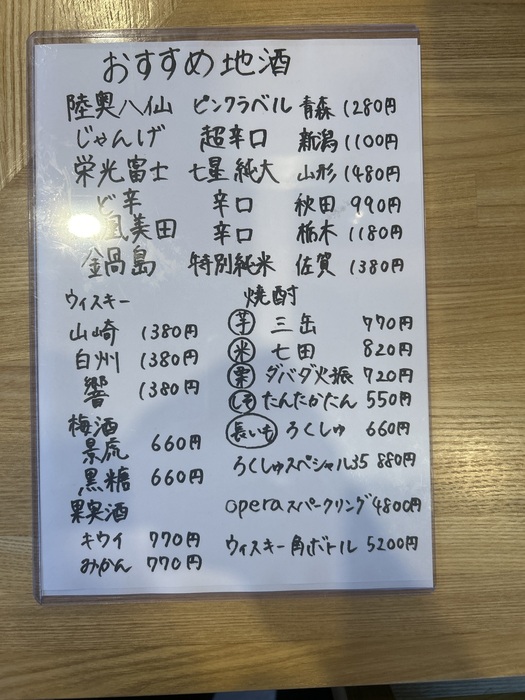 おすすめ地酒
陸奥八仙 ピンクラベル 青森 1280円
じゃんげ 超辛口 新潟 1100円
栄光冨士 七星 純大 山形 1480円
ど辛 辛口 秋田 990円
凰美田 辛口 栃木 1180円
金鍋島 特別純米 佐賀 1380円
ウィスキー
山崎 1380円
白州 1380円
響 1380円
梅酒
景虎 660円
黒糖 660円
果実酒
キウイ 770円
みかん 770円
焼酎
芋 三岳 770円
米 七田 820円
栗 ダバダ火振 720円
しそ たんたかたん 550円
長いも ろくしゅ 660円
ろくしゅスペシャル35 880円
opera スパークリング 4800円
ウィスキー角ボトル 5200円